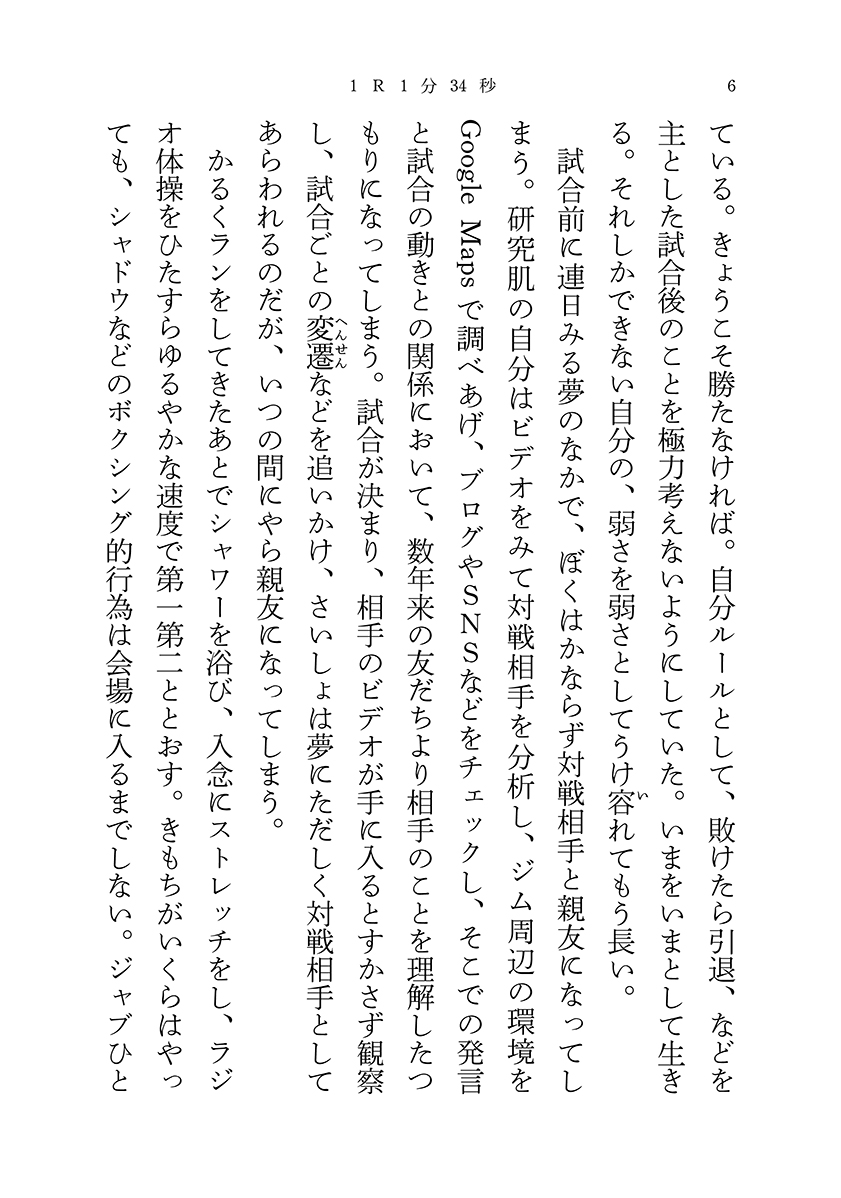 1R1分34秒
6
ている。きょうこそ勝たなければ。自分ルールとして、敗けたら引退、などを
主とした試合後のことを極力考えないようにしていた。いまをいまとして生き
る。それしかできない自分の、弱さを弱さとしてうけ容れてもう長い。
い
試合前に連日みる夢のなかで、ぼくはかならず対戦相手と親友になってし
まう。研究肌の自分はビデオをみて対戦相手を分析し、ジム周辺の環境を
Google Mapsで調べあげ、ブログやSNSなどをチェックし、そこでの発言
と試合の動きとの関係において、数年来の友だちより相手のことを理解したつ
もりになってしまう。試合が決まり、相手のビデオが手に入るとすかさず観察
し、試合ごとの変遷などを追いかけ、さいしょは夢にただしく対戦相手として
へんせん
あらわれるのだが、いつの間にやら親友になってしまう。
かるくランをしてきたあとでシャワーを浴び、入念にストレッチをし、ラジ
オ体操をひたすらゆるやかな速度で第一第二ととおす。きもちがいくらはやっ
ても、シャドウなどのボクシング的行為は会場に入るまでしない。ジャブひと